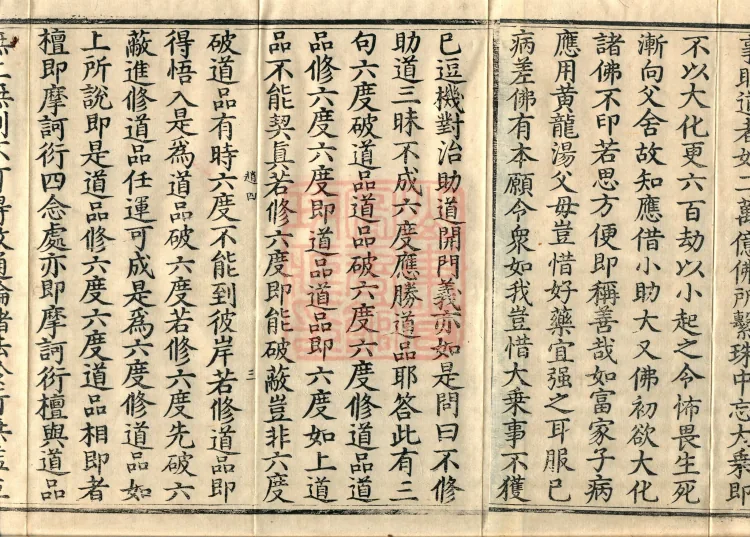 事助道者如二萬億佛所繫珠中忘大乘即
不以大化更六百劫以小起之令怖畏生死
漸向父舍故知應借小助大又佛初欲大化
諸佛不印若思方便即稱善哉如富家子病
應用黃龍湯父母豈惜好藥宜强之耳服已
病差佛有本願令衆如我豈惜大乗事不獲
已逗機對治助道開門義亦如是問曰不修
助道三昧不成六度應勝道品耶答此有三
句六度破道品道品破六度六度修道品道
品修六度六度即道品道品即六度如上道
品不能契眞若修六度即能破蔽豈非六度
趙四 三
破道品有時六度不能到彼岸若修道品即
得悟入是爲道品破六度若修六度先破六
蔽進修道品任運可成是爲六度修道品如
上所說即是道品修六度六度道品相即者
檀即摩訶衍四念處亦即摩訶衍檀與道品
無二無別不可得故